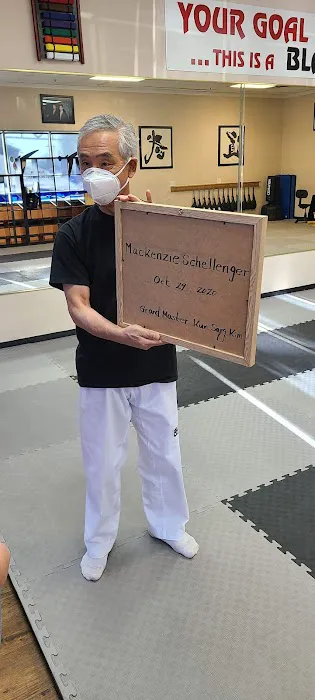 YOUR GOAL
...THIS IS A BLA
Mackenzie Schellenger
Oct 29 2020
Grand Master Kun Sang Kim